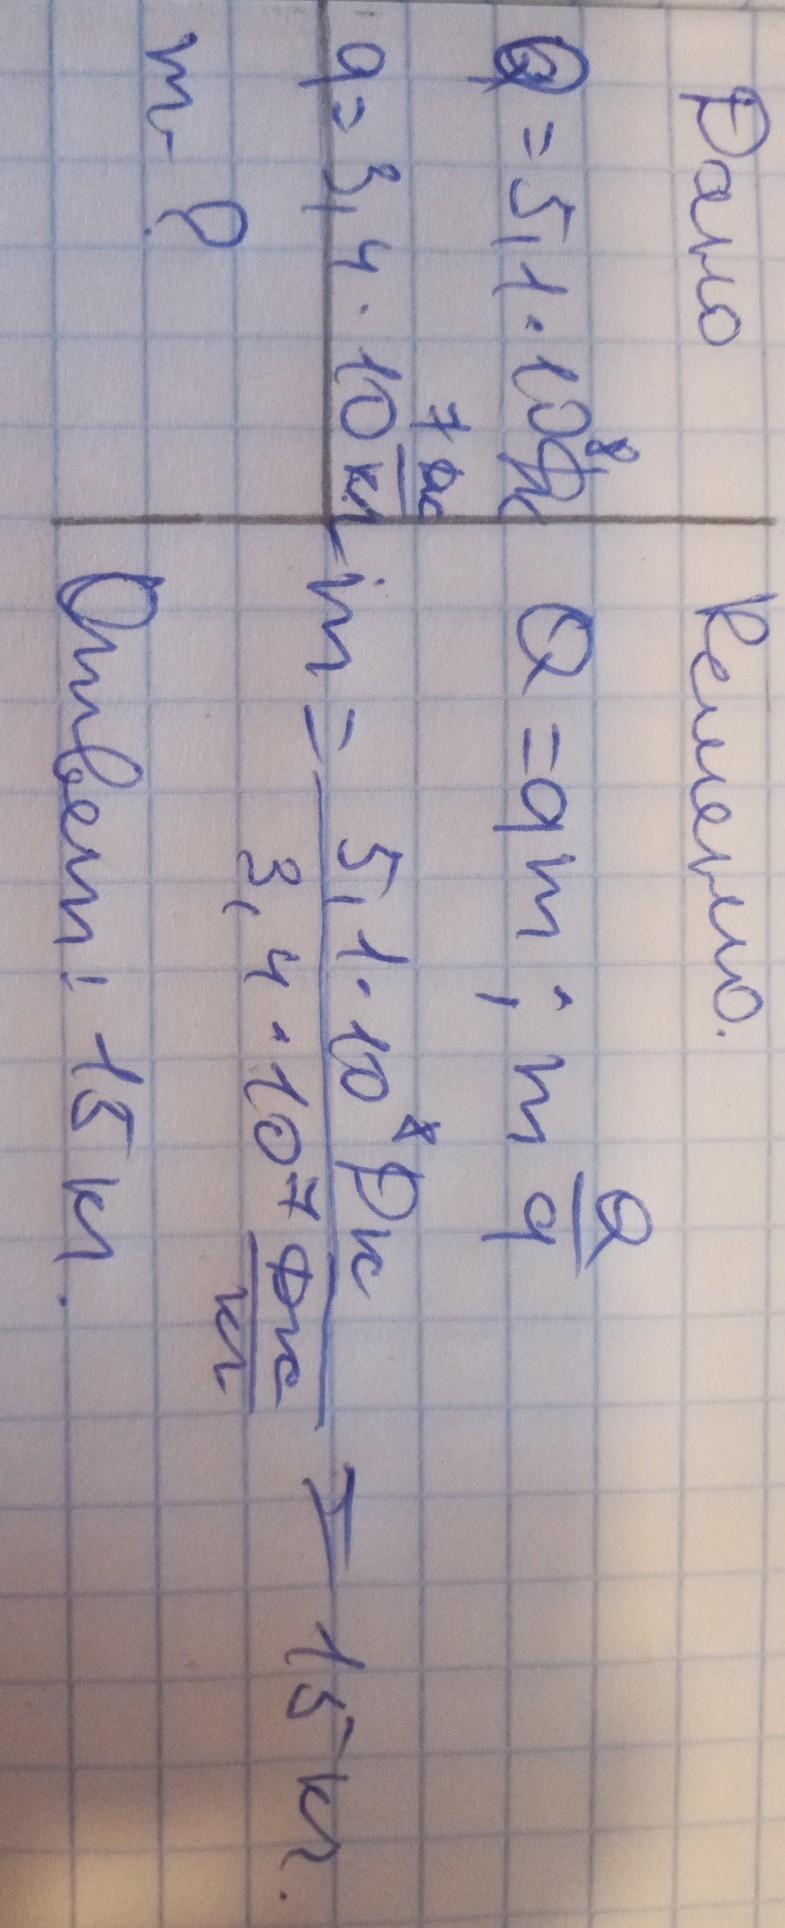 Дано
Q = 5,1 · 10⁸ Дж
q = 3,4 · 10⁷ Дж/кг
m - ?
Решение.
Q = qm ; m Q/q
m = 5,1 · 10⁸ Дж / 3,4 · 10⁷ Дж/кг = 15 кг.
Ответ: 15 кг.